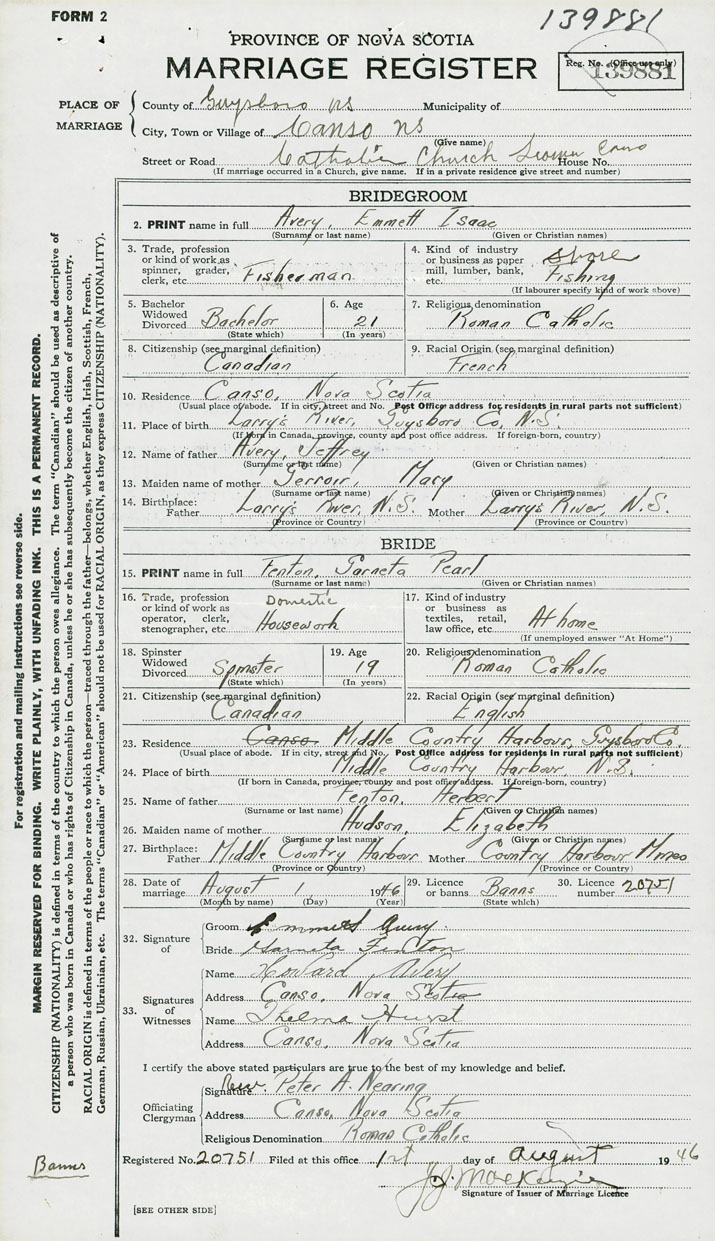 FORM 2
139881
PROVINCE OF NOVA SCOTIA
MARRIAGE REGISTER
Reg. No. (Office use only)
139881
PLACE OF MARRIAGE
County of Guysboro NS Municipality of
City, Town or Village of Canso NS
(Give name)
Street or Road Catholic Church House No.
(If marriage occurred in a Church, give name. If in a private residence give street and number)
BRIDEGROOM
2. PRINT name in full Avery, Emmett Isaac
(Surname or last name) (Given or Christian names)
3. Trade, profession or kind of work as spinner, grader, clerk, etc. Fisherman
4. Kind of industry or business as paper mill, lumber, bank, etc. shore Fishing
(If labourer specify kind of work above)
5. Bachelor Widowed Divorced Bachelor
(State which)
6. Age 21
(In years)
7. Religious denomination Roman Catholic
8. Citizenship (see marginal definition) Canadian
9. Racial Origin (see marginal definition) French
10. Residence Canso, Nova Scotia
(Usual place of abode. If in city, street and No. Post Office address for residents in rural parts not sufficient)
11. Place of birth Larry's River, Guysboro Co., N.S.
(If born in Canada, province, county and post office address. If foreign-born, country)
12. Name of father Avery, Jeffrey
(Surname or last name) (Given or Christian names)
13. Maiden name of mother Gerroir, Mary
(Surname or last name) (Given or Christian names)
14. Birthplace: Father Larry's River, N.S. Mother Larry's River, N.S.
(Province or Country) (Province or Country)
BRIDE
15. PRINT name in full Fenton, Garneta Pearl
(Surname or last name) (Given or Christian names)
16. Trade, profession or kind of work as operator, clerk, stenographer, etc. Domestic Housework
17. Kind of industry or business as textiles, retail, law office, etc. At home
(If unemployed answer "At Home")
18. Spinster Widowed Divorced Spinster
(State which)
19. Age 19
(In years)
20. Religious denomination Roman Catholic
21. Citizenship (see marginal definition) Canadian
22. Racial Origin (see marginal definition) English
23. Residence Canso Middle Country Harbour, Guysboro Co.
(Usual place of abode. If in city, street and No. Post Office address for residents in rural parts not sufficient)
24. Place of birth Middle Country Harbour, N.S.
(If born in Canada, province, county and post office address. If foreign-born, country)
25. Name of father Fenton, Herbert
(Surname or last name) (Given or Christian names)
26. Maiden name of mother Hudson, Elizabeth
(Surname or last name) (Given or Christian names)
27. Birthplace: Father Middle Country Harbour Mother Country Harbour Mines
(Province or Country) (Province or Country)
28. Date of marriage August 1, 1946
(Month by name) (Day) (Year)
29. Licence or banns Banns
(State which)
30. Licence number 20751
32. Signature of
Groom Emmett Avery
Bride Garneta Fenton
33. Signatures of Witnesses
Name Howard Avery
Address Canso, Nova Scotia
Name Thelma Hurst
Address Canso, Nova Scotia
I certify the above stated particulars are true to the best of my knowledge and belief.
Officiating Clergyman
Signature Rev. Peter A. Nearing
Address Canso, Nova Scotia
Religious Denomination Roman Catholic
Registered No. 20751 Filed at this office 1st day of August 1946
J.J. MacKenzie
Signature of Issuer of Marriage Licence
[SEE OTHER SIDE]
Banns
For registration and mailing instructions see reverse side.
MARGIN RESERVED FOR BINDING. WRITE PLAINLY, WITH UNFADING INK. THIS IS A PERMANENT RECORD.
CITIZENSHIP (NATIONALITY) is defined in terms of the country to which the person owes allegiance. The term "Canadian" should be used as descriptive of
a person who was born in Canada or who has rights of Citizenship in Canada, unless he or she has subsequently become the citizen of another country.
RACIAL ORIGIN is defined in terms of the people or race to which the person—traced through the father—belongs, whether English, Irish, Scottish, French,
German, Russian, Ukrainian, etc. The terms "Canadian" or "American" should not be used for RACIAL ORIGIN, as they express CITIZENSHIP (NATIONALITY).